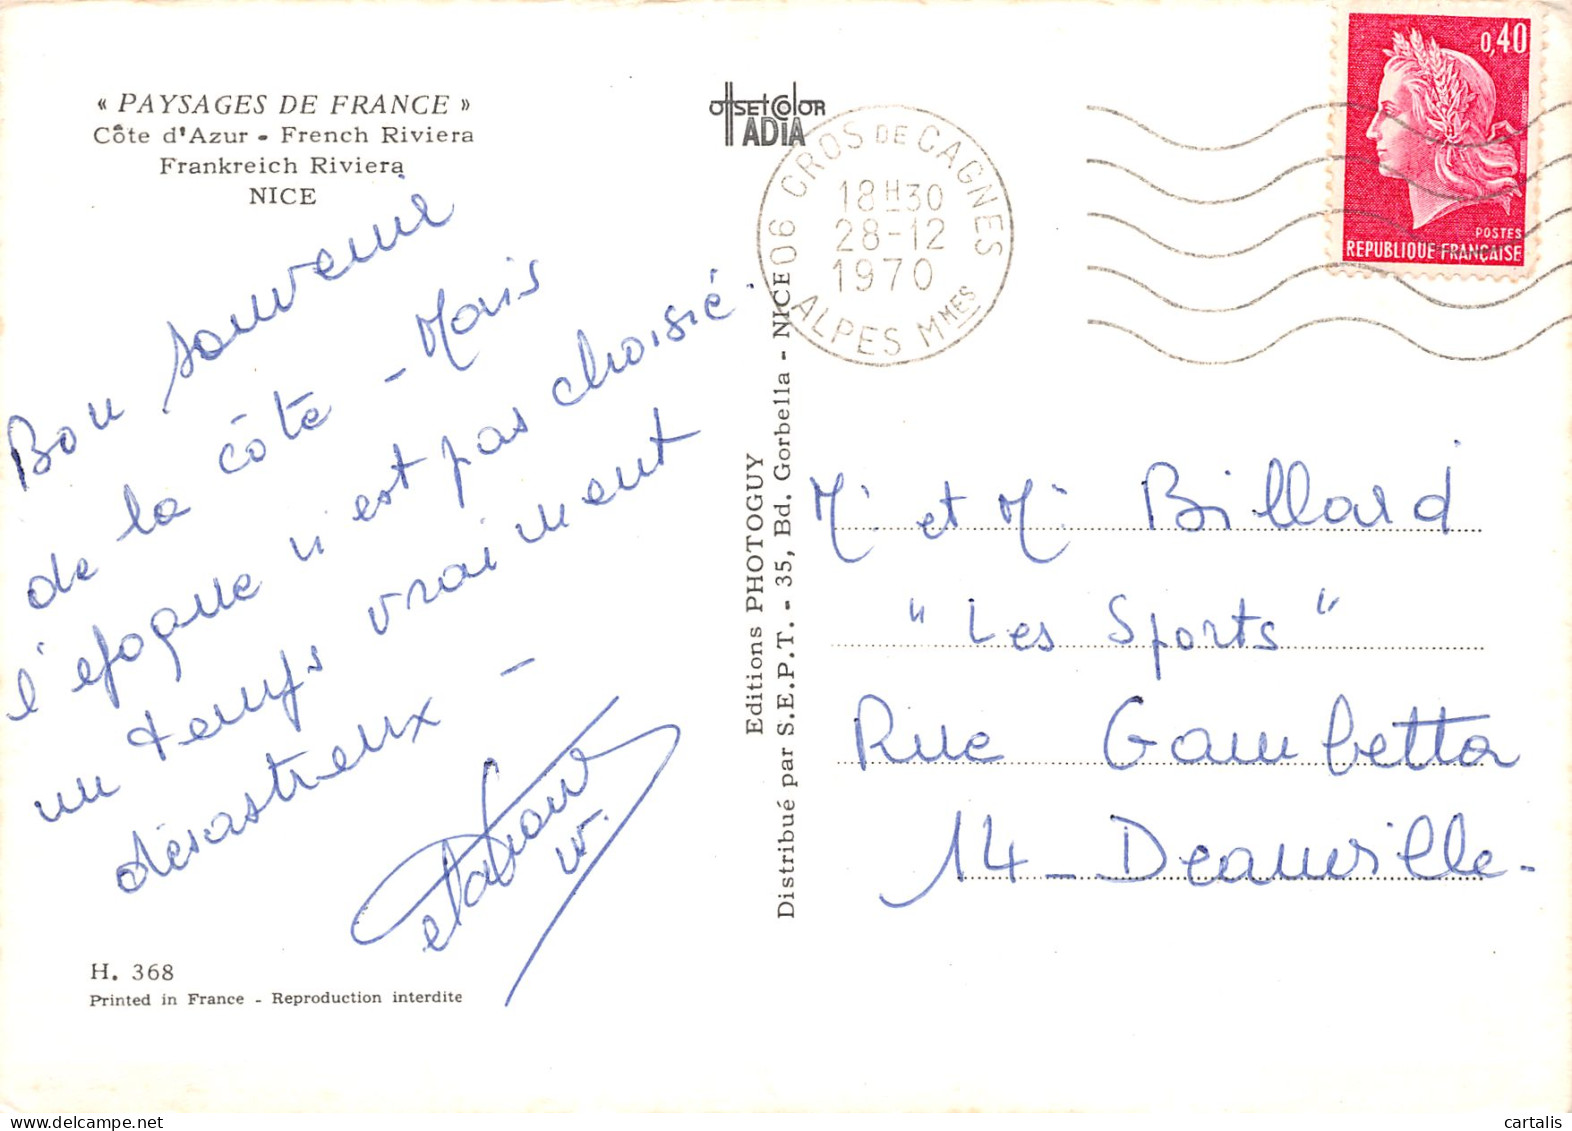 « PAYSAGES DE FRANCE »
Côte d'Azur - French Riviera
Frankreich Riviera
NICE
Bon souvenir
de la côte - Mais
l'époque n'est pas choisie.
un temps vraiment
désastreux -
H. 368
Printed in France - Reproduction interdite
OffSEtColOR
TADIA
Editions PHOTOGUY
Distribué par S.E.P.T. - 35, Bd. Gorbella - NICE
06 CROS DE CAGNES
18H30
28-12
1970
ALPES MMES
0,40
POSTES
REPUBLIQUE FRANÇAISE
M. et M. Billard
"Les Sports"
Rue Gambetta
14 - Deauville -
cartalis